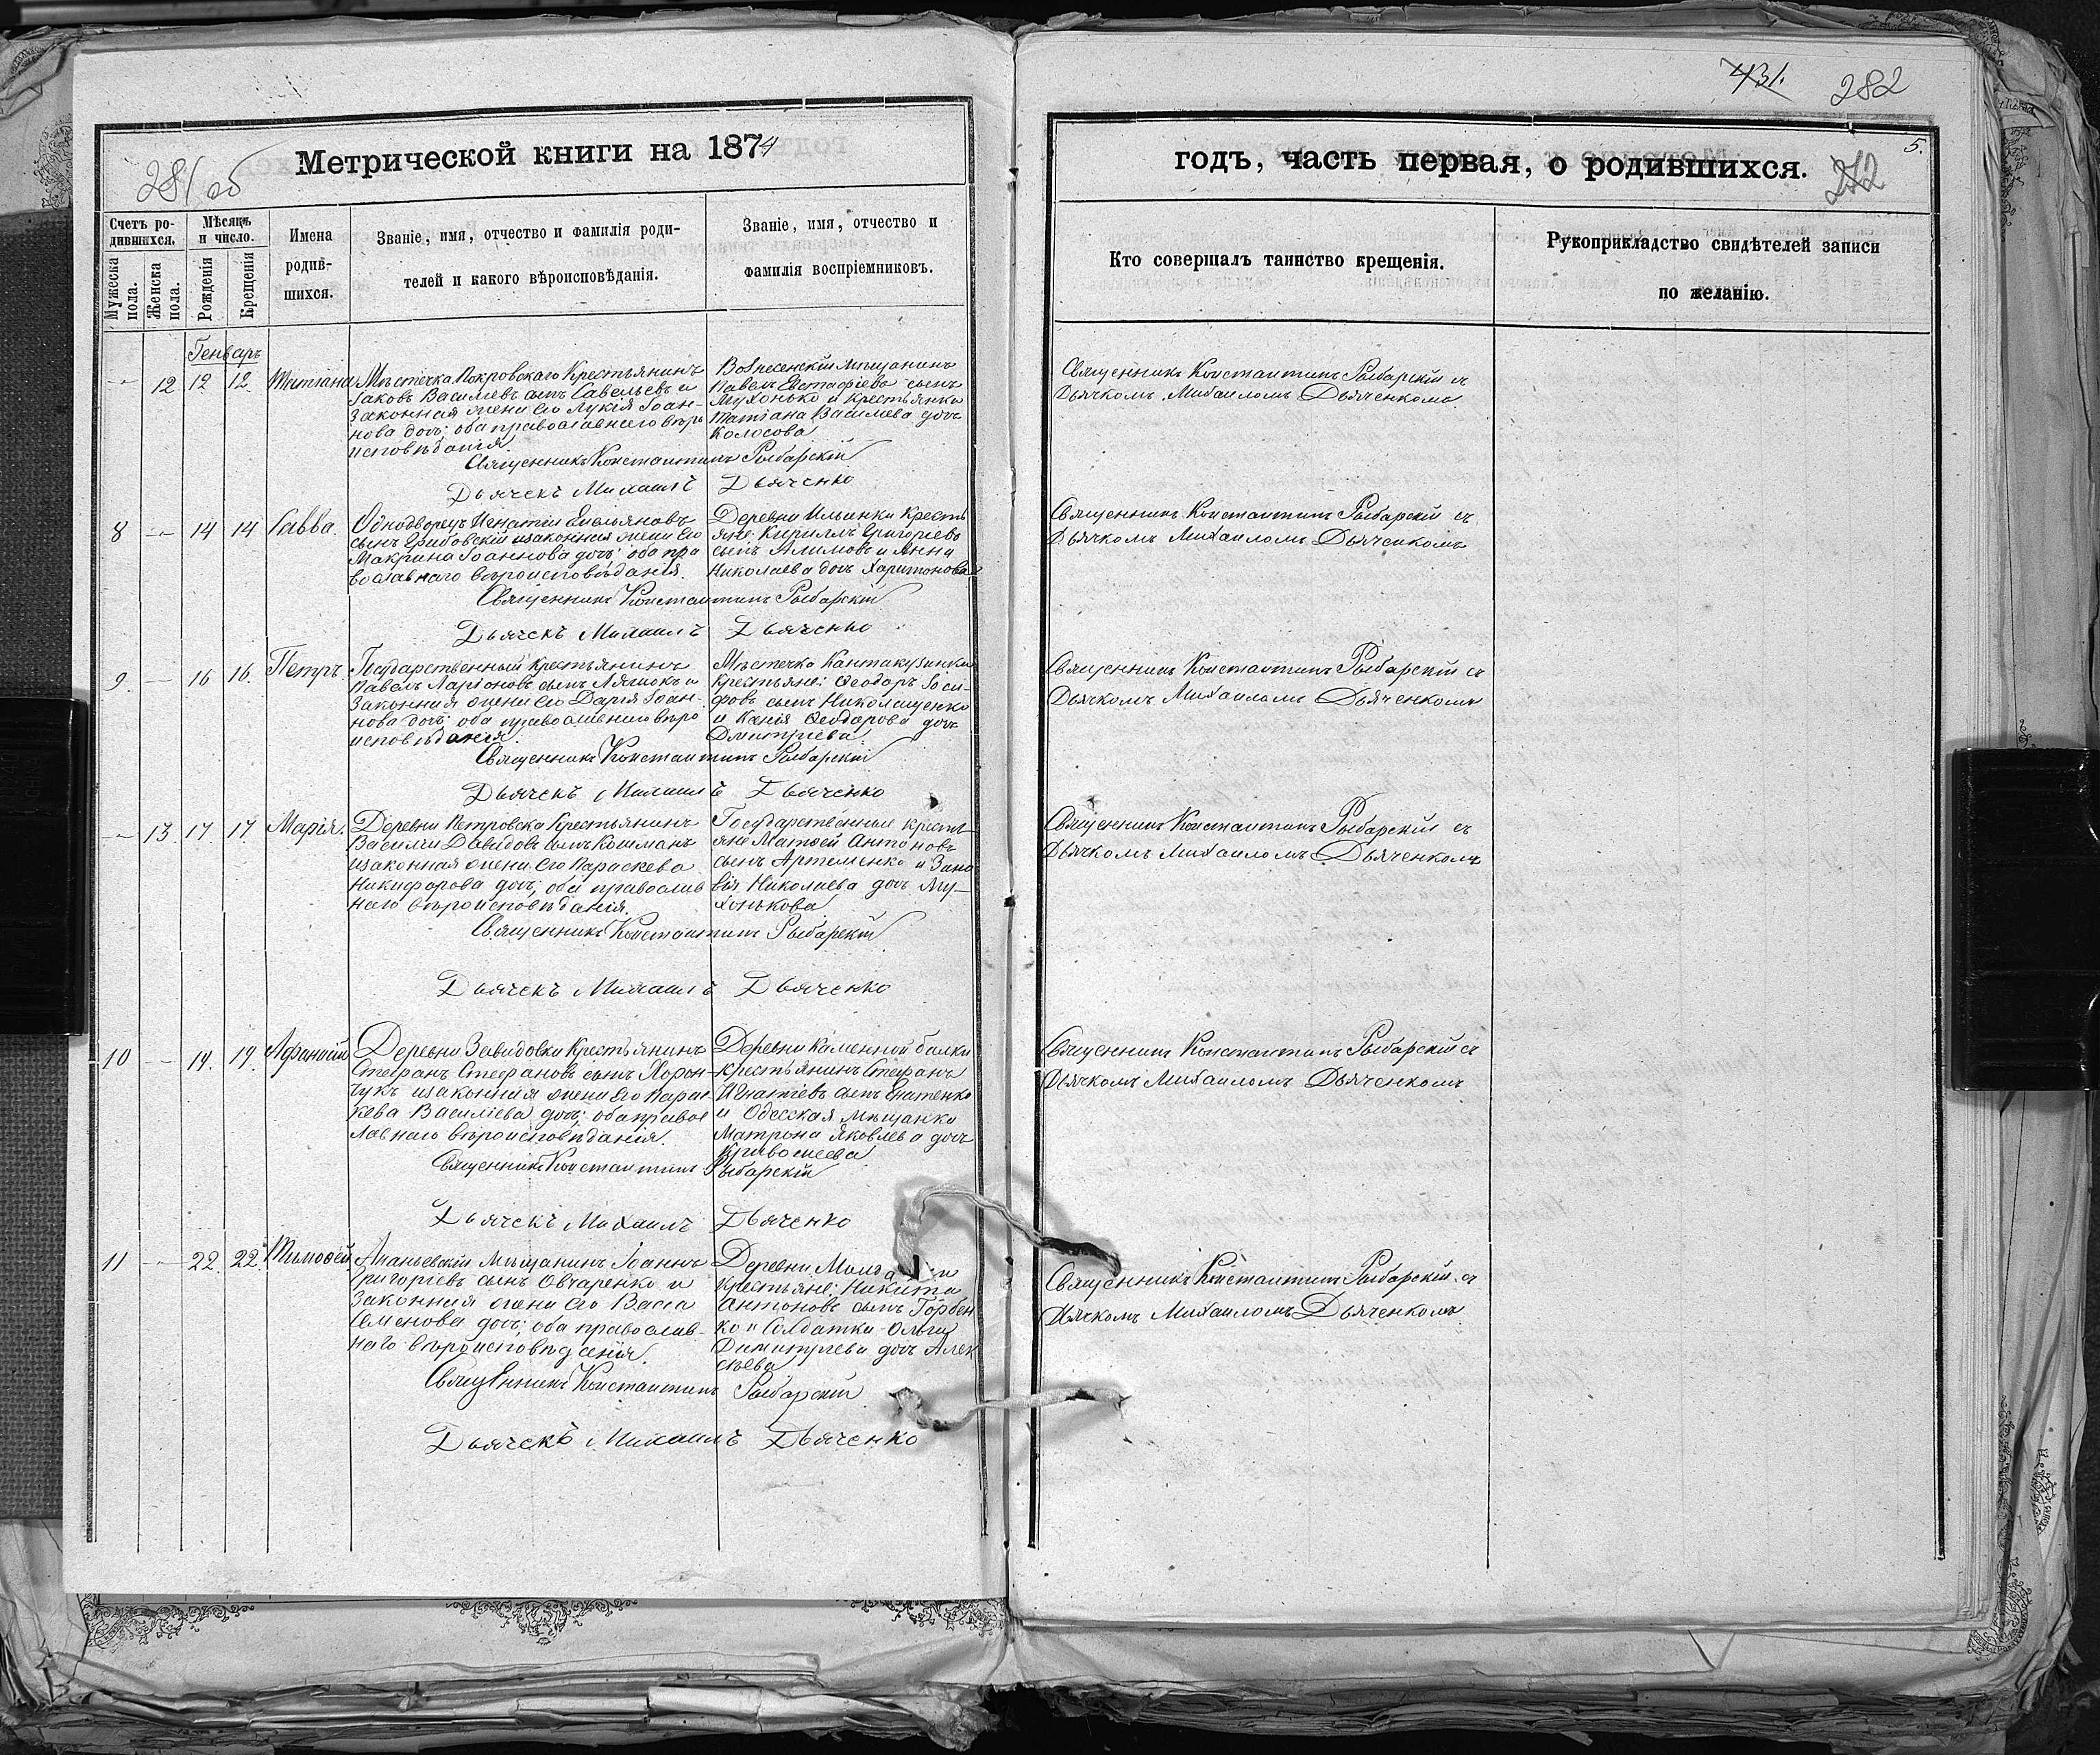 431.
282
281 об
Метрической книги на 1874
годъ, часть первая, о родившихся.
5.
212
Счетъ ро-
дившихся.
Мѣсяцъ
и число.
Мужеска
пола.
Женска
пола.
Рожденія
Крещенія
Имена
родив-
шихся.
Званіе, имя, отчество и фамилія роди-
телей и какого вѣроисповѣданія.
Званіе, имя, отчество и
фамилія воспріемниковъ.
Кто совершалъ таинство крещенія.
Рукоприкладство свидѣтелей записи
по желанію.
Генварь
12 12 12 Татіана
Мѣстечка Покровскаго Крестьянинъ
Іаковъ Василіевъ сынъ Савельевъ и
законная жена его Лукія Іоан-
нова дочь; оба православнаго вѣро
исповѣданія
Вознесенскій мѣщанинъ
Павелъ Евстафіевъ сынъ
Мухонько и крестьянка
Татіана Василіева дочь
Колосова
Священникъ Константинъ Рыбарскій
Дьячекъ Михаилъ Дьяченко
Священникъ Константинъ Рыбарскій съ
Дьячкомъ Михаиломъ Дьяченкомъ
8 14 14 Савва
Однодворецъ Игнатій Емельяновъ
сынъ Грибовскій и законная жена его
Макрина Іоаннова дочь; оба пра
вославнаго вѣроисповѣданія.
Деревни Ильинки Кресть
яне: Кириллъ Григоріевъ
сынъ Алимовъ и Анна
Николаева дочь Харитонова
Священникъ Константинъ Рыбарскій
Дьячекъ Михаилъ Дьяченко
Священникъ Константинъ Рыбарскій съ
Дьячкомъ Михаиломъ Дьяченкомъ
9. 16 16. Петръ
Государственный крестьянинъ
Павелъ Ларіоновъ сынъ и
законная жена его Дарія Іоан-
нова дочь; оба православнаго вѣро
исповѣданія.
Мѣстечка Кантакузинки
Крестьяне: Ѳеодоръ Іоси-
фовъ сынъ Николащенко
и Ѳеодорова дочь
Дмитріева
Священникъ Константинъ Рыбарскій
Дьячекъ Михаилъ Дьяченко
Священникъ Константинъ Рыбарскій съ
Дьячкомъ Михаиломъ Дьяченкомъ
13. 17. 17. Марія.
Деревни Петровска Крестьянинъ
Василій Давидовъ сынъ Кошманъ
и законная жена его Параскева
Никифорова дочь; оба православ
наго вѣроисповѣданія.
Государственные кресть-
яне Матѳей Антоновъ
сынъ Артеменко и Зено
вія Николаева дочь Му-
хонькова
Священникъ Константинъ Рыбарскій
Дьячекъ Михаилъ Дьяченко
Священникъ Константинъ Рыбарскій съ
Дьячкомъ Михаиломъ Дьяченкомъ
10 19. 19. Афанасій
Деревни Завидовки Крестьянинъ
Стефанъ Стефановъ сынъ Хорон-
чукъ и законная жена его Парас
кева Василіева дочь; оба правос
лавнаго вѣроисповѣданія.
Деревни Каменной балки
крестьянинъ Стефанъ
Игнатіевъ сынъ Игнатенко
и Одесская мѣщанка
Матрона Яковлева дочь
Кривошеева
Священникъ Константинъ Рыбарскій
Дьячекъ Михаилъ Дьяченко
Священникъ Константинъ Рыбарскій съ
Дьячкомъ Михаиломъ Дьяченкомъ
11 22. 22. Тимоѳей.
Ананьевскій Мѣщанинъ Іоаннъ
Григоріевъ сынъ Овчаренко и
законная жена его Васса
Семенова дочь; оба православ-
наго вѣроисповѣданія.
Деревни
крестьяне: Никита
Антоновъ сынъ Горбен
ко и Солдатка Ольга
Димитріева дочь Алек
сѣева
Священникъ Константинъ Рыбарскій
Дьячекъ Михаилъ Дьяченко
Священникъ Константинъ Рыбарскій съ
Дьячкомъ Михаиломъ Дьяченкомъ